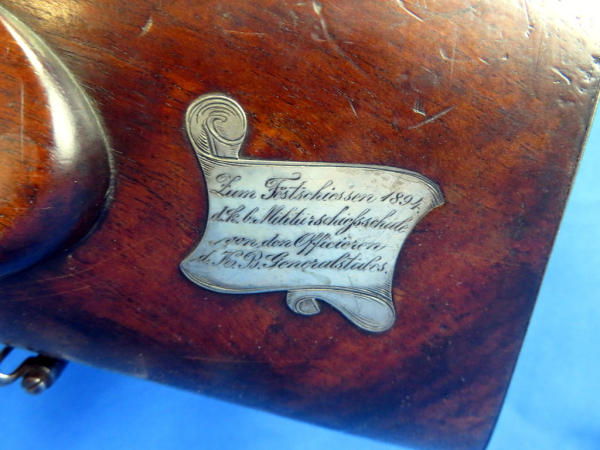 Zum Festschiessen 1894
d. k. b. Militärschießschule
von den Officieren
d. K. B. Generalstabes.